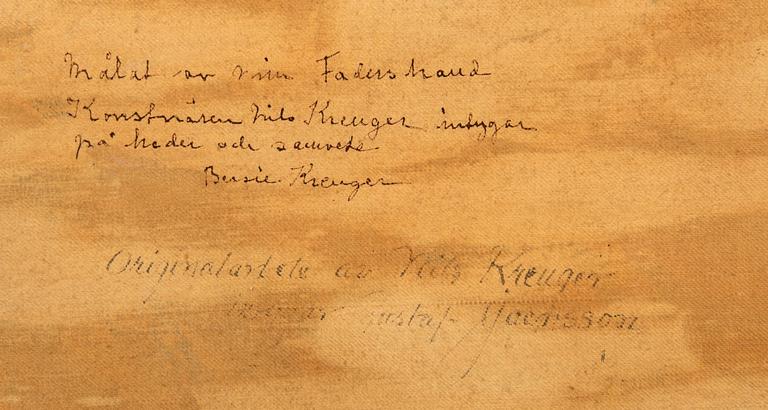 Målat av min Faders hand
Konstnären Nils Kreuger intygar
på heder och samvete
Bersie Kreuger
Originalarbete av Nils Kreuger
Gustaf